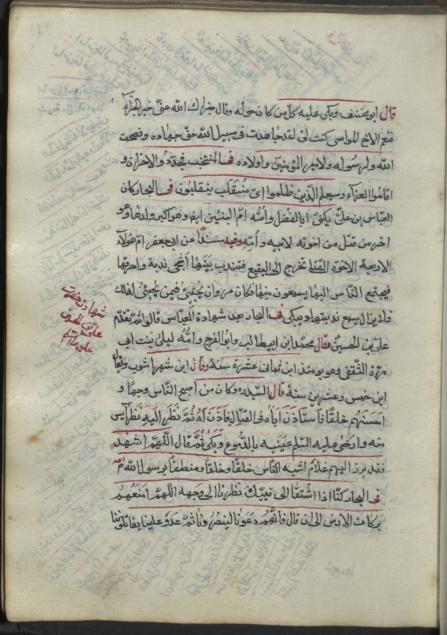 قال ابو مخنف فبكى عليه كل من كان حوله وقال جزاك الله عنى خير الجزاء
نعم الاخ المواسى كنت لى لقد جاهدت فى سبيل الله حق جهاده ونصحت
الله ولرسوله ولامير المؤمنين واولاده فى المنتخب وجددوا الاحزان و
اقاموا العزاء وسيعلم الذين ظلموا اى منقلب ينقلبون فى البحار كان
العباس بن على يكنى ابا الفضل وامه ام البنين ايضا وهو اكبر ولدها وهو
اخر من قتل من اخوته لابيه وامه وفيه مسندا عن ابى جعفر ام هولاء
الاربعة الاخوة القتلى تخرج الى البقيع فتندب بنيها اشجى ندبة واحرقها
فيجتمع الناس اليها يسمعون منها فكان مروان يجئ فيمن يجئ لذلك
فلا يزال يسمع ندبتها ويبكى فى البحار بعد شهادة العباس قالوا ثم تقدم
على بن الحسين فقال محمد بن ابيطالب وابو الفرج وامه ليلى بنت ابى
مرة الثقفى وهو يومئذ ابن ثمان عشرة سنة وقال ابن شهراشوب ويقال
ابن خمس وعشرين سنة قال السيد وكان من اصبح الناس وجها و
احسنهم خلقا فاستاذن اباه فى القتال فاذن له ثم نظر اليه نظر آيس
منه وارخى عليه السلم عينيه بالدموع وبكى ثم قال اللهم اشهد
فقد برز اليهم غلام اشبه الناس خلقا وخلقا ومنطقا برسول الله
فى البحار كنا اذا اشتقنا الى نبيك نظرنا الى وجهه اللهم امنعهم
بركات الارض الى ان قال فانهم دعونا لينصرونا ثم عدوا علينا يقاتلوننا
شهادت حضرت
على بن الحسين
عليهما السلام